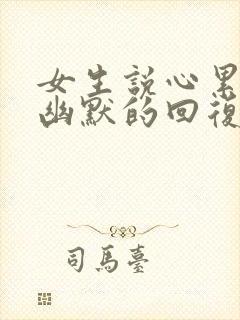 女生説心累
幽默的回復
司馬臺